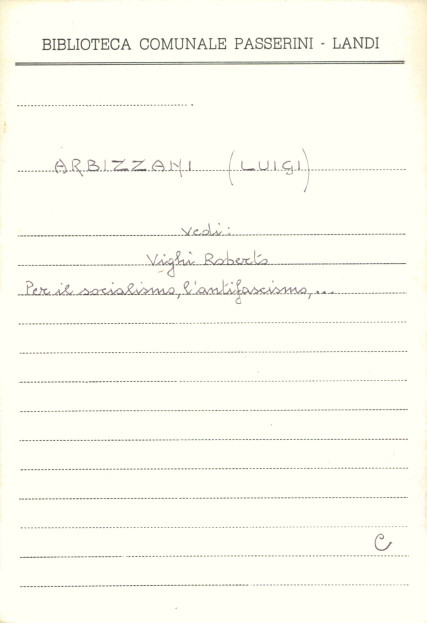 BIBLIOTECA COMUNALE PASSERINI - LANDI
ARBIZZANI (LUIGI)
vedi:
Vighi Roberto
Per il socialismo, l'antifascismo,...
C